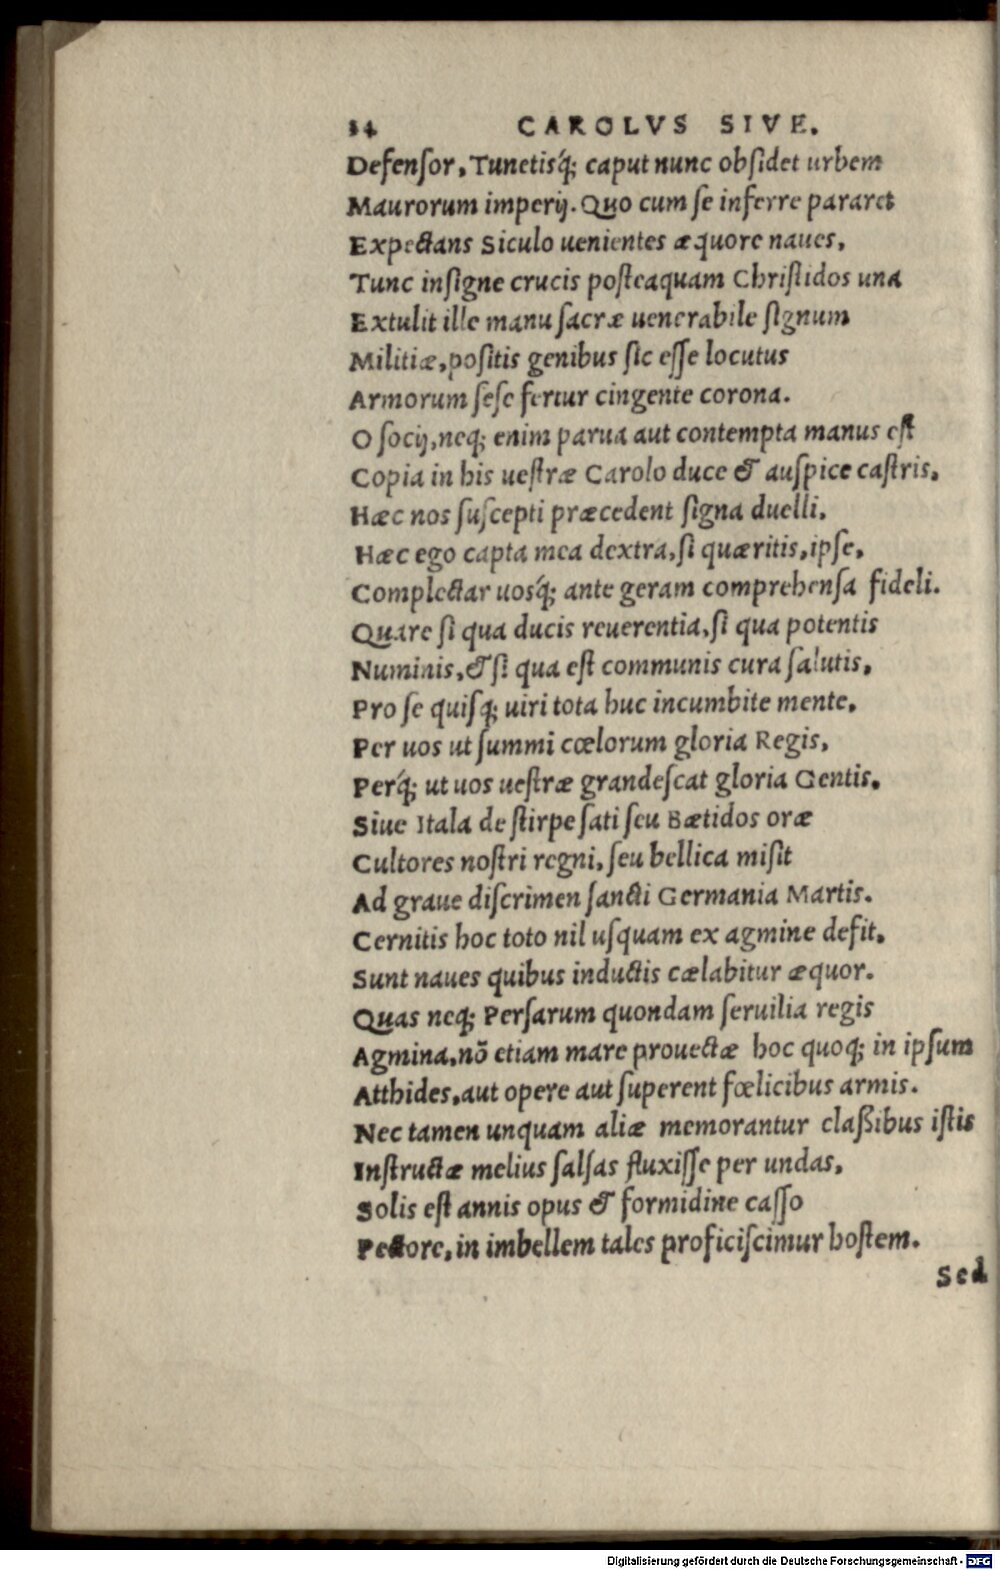 14 CAROLVS SIVE.
Defensor, Tunetisq́; caput nunc obsidet urbem
Maurorum imperij. Quo cum se inferre pararet
Expectans Siculo uenientes æquore naues,
Tunc insigne crucis posteaquam Christidos una
Extulit ille manu sacræ uenerabile signum
Militiæ, positis genibus sic esse locutus
Armorum sese fertur cingente corona.
O socij, neq; enim parua aut contempta manus est
Copia in his uestræ Carolo duce & auspice castris,
Hæc nos suscepti præcedent signa duelli,
Hæc ego capta mea dextra, si quæritis, ipse,
Complectar uosq́; ante geram comprehensa fideli.
Quare si qua ducis reuerentia, si qua potentis
Numinis, & si qua est communis cura salutis,
Pro se quisq; uiri tota huc incumbite mente,
Per uos ut summi cœlorum gloria Regis,
Perq́; ut uos uestræ grandescat gloria Gentis.
Siue Itala de stirpe sati seu Bætidos oræ
Cultores nostri regni, seu bellica misit
Ad graue discrimen sancti Germania Martis.
Cernitis hoc toto nil usquam ex agmine defit,
Sunt naues quibus inductis cælabitur æquor.
Quas neq; Persarum quondam seruilia regis
Agmina, nõ etiam mare prouectæ hoc quoq; in ipsum
Atthides, aut opere aut superent fœlicibus armis.
Nec tamen unquam aliæ memorantur claßibus istis
Instructæ melius salsas fluxisse per undas,
Solis est annis opus & formidine casso
Pectore, in imbellem tales proficiscimur hostem.
Sed
Digitalisierung gefördert durch die Deutsche Forschungsgemeinschaft - DFG